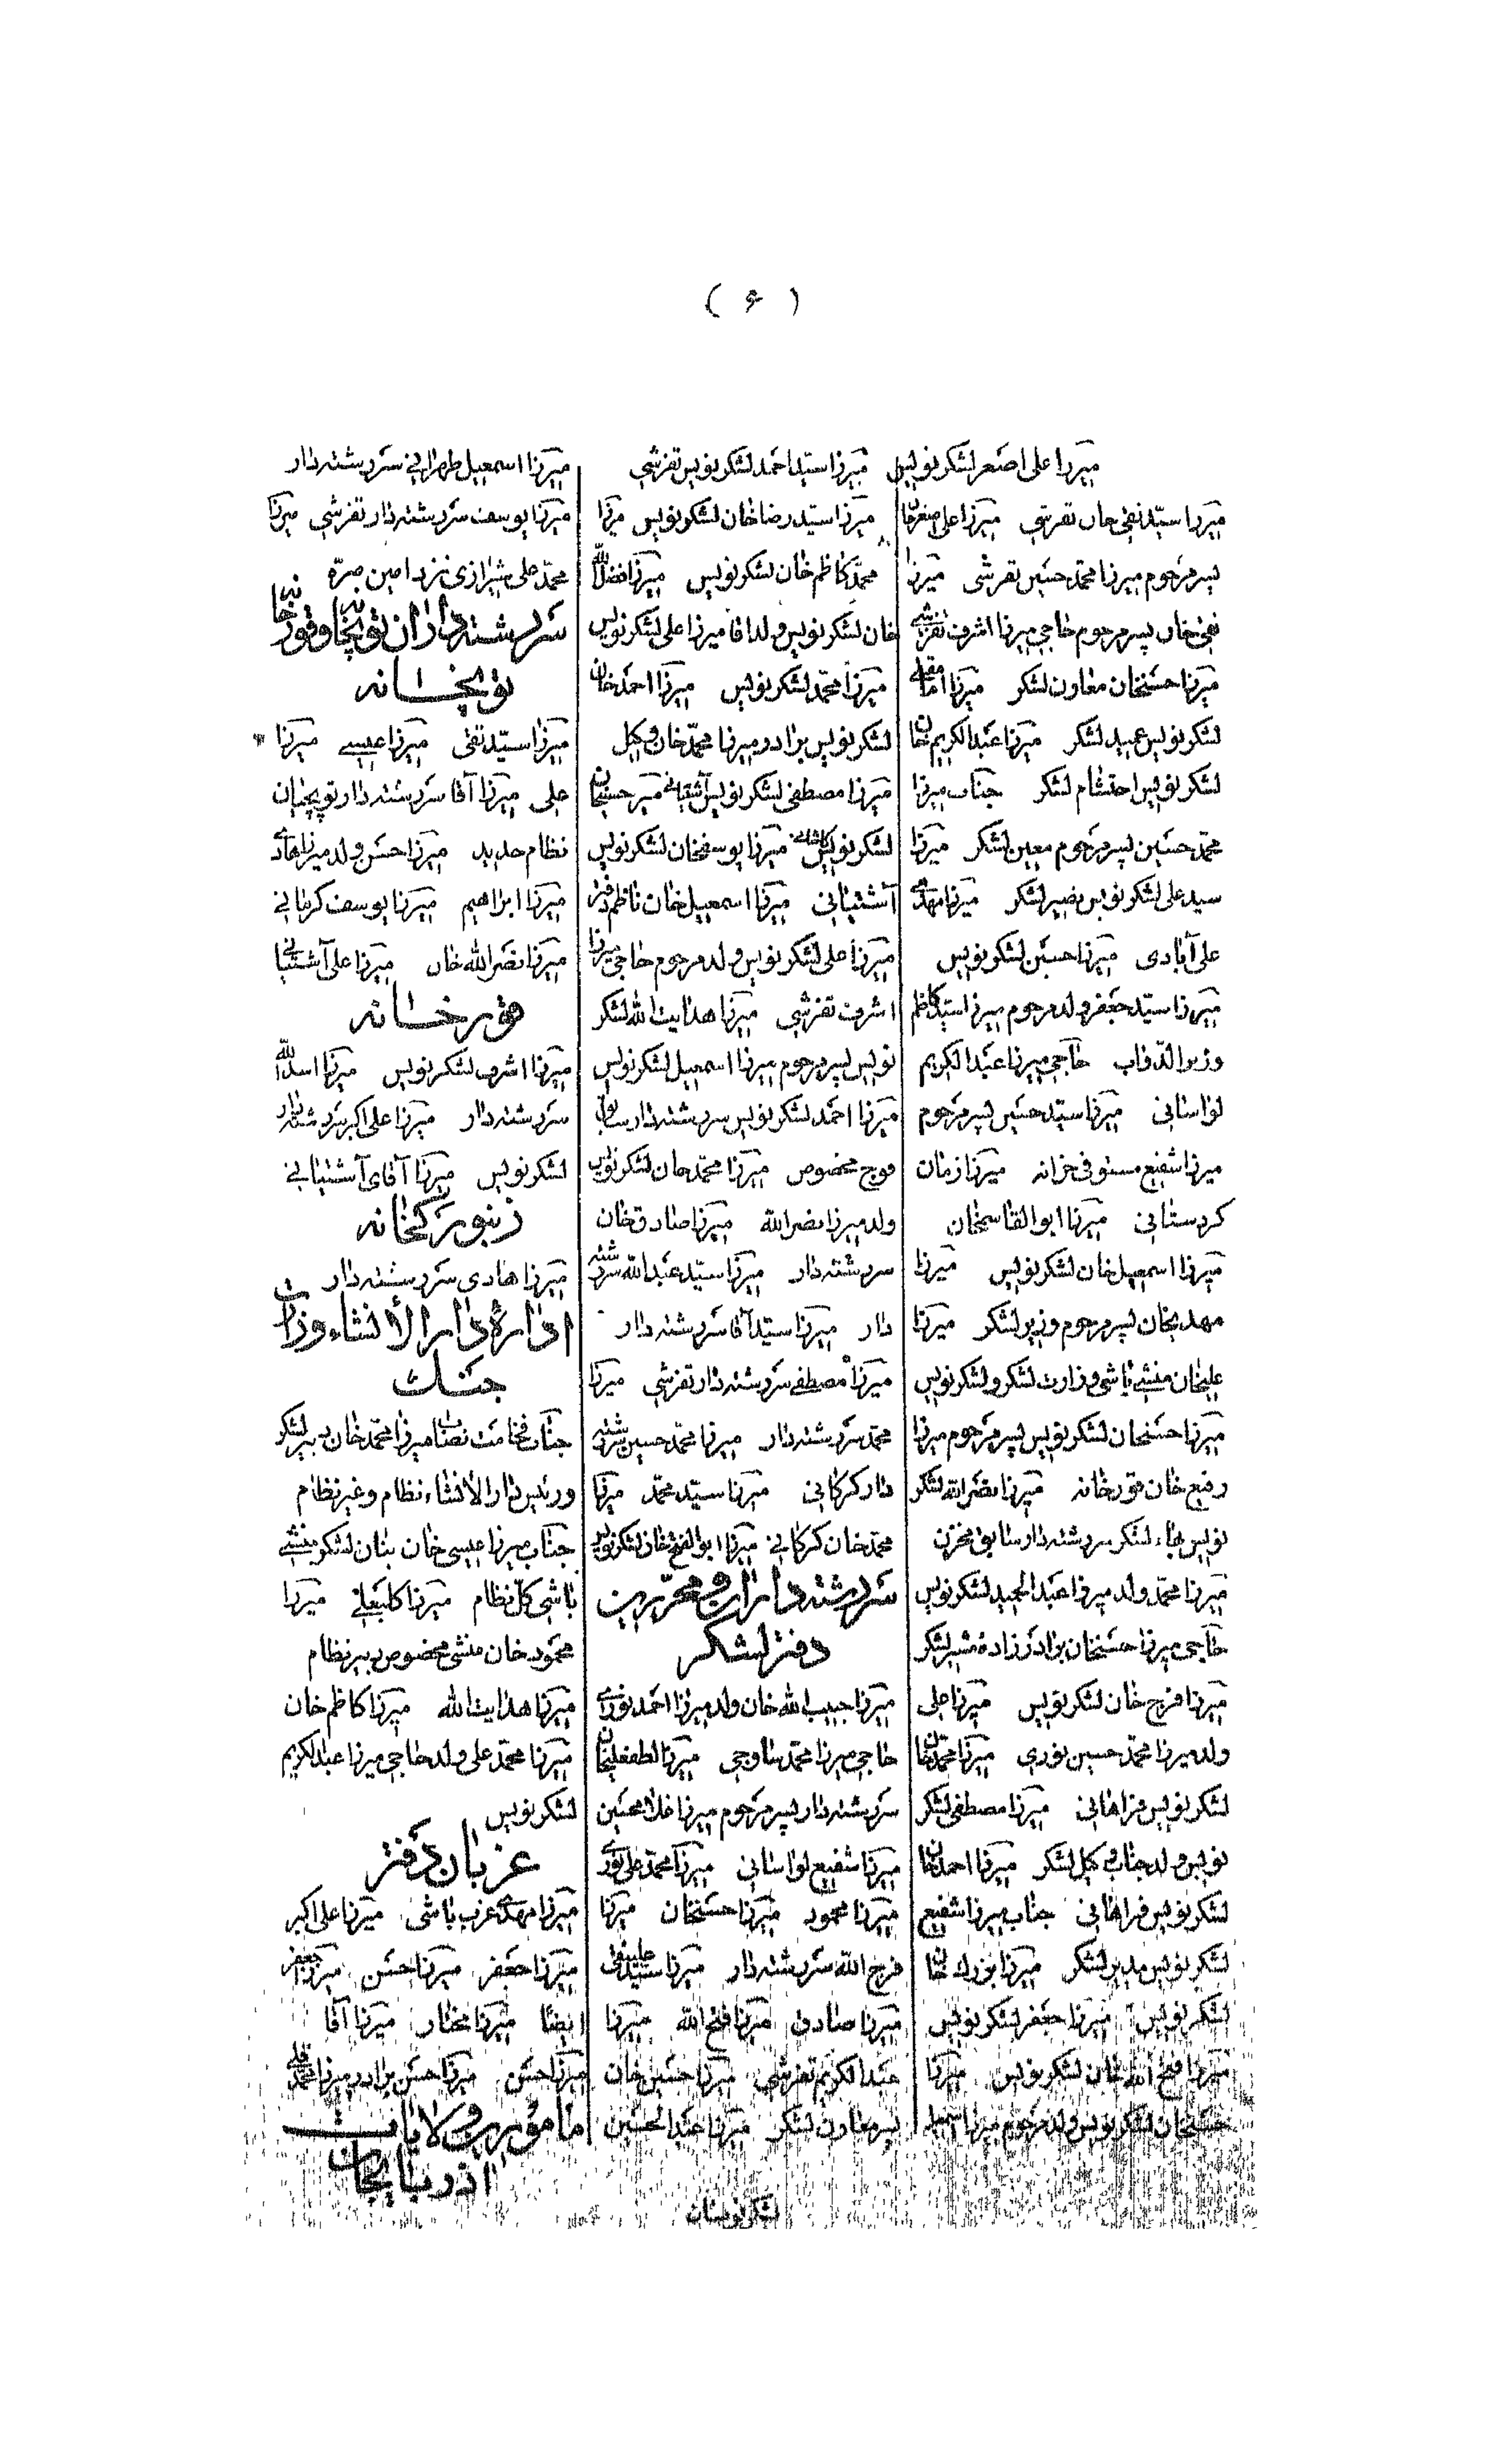 ( ۶ )
میرزا علی اصغر لشکر نویس
میرزا سید نقی خان تفرشی میرزا علی اصغر خان
پسر مرحوم میرزا محمد حسین تفرشی میرزا
نقی خان پسر مرحوم حاجی میرزا اشرف تفرشی
میرزا حسنخان معاون لشکر میرزا امامقلی
لشکر نویس عمید لشکر میرزا عبدالکریم خان
لشکر نویس احتشام لشکر جناب میرزا
محمد حسین پسر مرحوم معین لشکر میرزا
سید علی لشکر نویس نصیر لشکر میرزا مهدی
علی آبادی میرزا حسین لشکر نویس
میرزا سید جعفر ولد مرحوم میرزا سید کاظم
وزیر الدواب حاجی میرزا عبدالکریم
لواسانی میرزا سید حسین پسر مرحوم
میرزا شفیع مستوفی خزانه میرزا زمان
کردستانی میرزا ابوالقاسمخان
میرزا اسمعیل خان لشکر نویس میرزا
مهدیخان پسر مرحوم وزیر لشکر میرزا
علیخان منشی باشی وزارت لشکر و لشکر نویس
میرزا حسنخان لشکر نویس پسر مرحوم میرزا
رفیع خان قورخانه میرزا نصرالله لشکر
نویس بهاء لشکر سررشته دار سابق مخزن
میرزا محمد ولد میرزا عبدالحمید لشکر نویس
حاجی میرزا حسنخان برادرزاده مشیر لشکر
میرزا فرج خان لشکر نویس میرزا علی
ولد میرزا محمد حسین نوری میرزا محمد خان
لشکر نویس فراهانی میرزا مصطفی لشکر
نویس ولد جناب وکیل لشکر میرزا احمد خان
لشکر نویس فراهانی جناب میرزا شفیع
لشکر نویس مدیر لشکر میرزا بزرك خان
لشکر نویس میرزا جعفر لشکر نویس
میرزا فتح الله خان لشکر نویس میرزا
حسنخان لشکر نویس ولد مرحوم میرزا اسمعیل
میرزا سید احمد لشکر نویس تفرشی
میرزا سید رضا خان لشکر نویس میرزا
محمد کاظم خان لشکر نویس میرزا فضل الله
خان لشکر نویس ولد آقا میرزا علی لشکر نویس
میرزا محمد لشکر نویس میرزا احمد خان
لشکر نویس برادر میرزا محمد خان وکیل
میرزا مصطفی لشکر نویس آشتیانی میر حسنخان
لشکر نویس کاشانی میرزا یوسفخان لشکر نویس
آشتیانی میرزا اسمعیل خان ناظم دفتر
میرزا علی لشکر نویس ولد مرحوم حاجی میرزا
اشرف تفرشی میرزا هدایت الله لشکر
نویس پسر مرحوم میرزا اسمعیل لشکر نویس
میرزا احمد لشکر نویس سررشته دار سابق
فوج مخصوص میرزا محمد خان لشکر نویس
ولد میرزا نصرالله میرزا صادق خان
سررشته دار میرزا سید عبدالله سررشته
دار میرزا سید آقا سررشته دار
میرزا مصطفی سررشته دار تفرشی میرزا
محمد سررشته دار میرزا محمد حسین سررشته
دار کرکانی میرزا سید محمد میرزا
محمد خان کرکانی میرزا ابوالفتح خان لشکر نویس
سررشته داران و محررین
دفتر لشکر
میرزا حبیب الله خان ولد میرزا احمد نوری
حاجی میرزا محمد ساوجی میرزا لطفعلیخان
سررشته دار پسر مرحوم میرزا غلامحسین
میرزا شفیع لواسانی میرزا محمد علی نوری
میرزا محمود میرزا حسنخان میرزا
فرج الله سررشته دار میرزا سید علینقی
میرزا صادق میرزا فتح الله میرزا
عبدالکریم تفرشی میرزا حسین خان
پسر معاون لشکر میرزا عبدالحسین
میرزا اسمعیل طهرانی سررشته دار
میرزا یوسف سررشته دار تفرشی میرزا
محمد علی شیرازی نزد امین صره
سررشته داران توپخانه و قورخانه
توپخانه
میرزا سید نقی میرزا عیسی میرزا
علی میرزا آقا سررشته دار توپچیان
نظام جدید میرزا حسن ولد میرزا هادی
میرزا ابراهیم میرزا یوسف کرمانی
میرزا نصرالله خان میرزا علی آشتیانی
قورخانه
میرزا اشرف لشکر نویس میرزا اسدالله
سررشته دار میرزا علی اکبر سررشته دار
لشکر نویس میرزا آقای آشتیانی
زنبورکخانه
میرزا هادی سررشته دار
اداره دار الأنشاء وزارت
جنك
جناب فخامت نصاب میرزا محمد خان دبیر لشکر
و رئیس دار الانشاء نظام و غیر نظام
جناب میرزا عیسی خان بنان لشکر منشی
باشی کل نظام میرزا کلبعلی میرزا
محمود خان منشی مخصوص دبیر نظام
میرزا هدایت الله میرزا کاظم خان
میرزا محمد علی ولد حاجی میرزا عبدالکریم
لشکر نویس
عزبان دفتر
میرزا مهدی عزب باشی میرزا علی اکبر
میرزا جعفر میرزا حسن میرزا جعفر
ایضا میرزا مختار میرزا آقا
میرزا حسن میرزا حسن برادر میرزا
مامورین ولایات
اذربایجان
لشکر نویسان